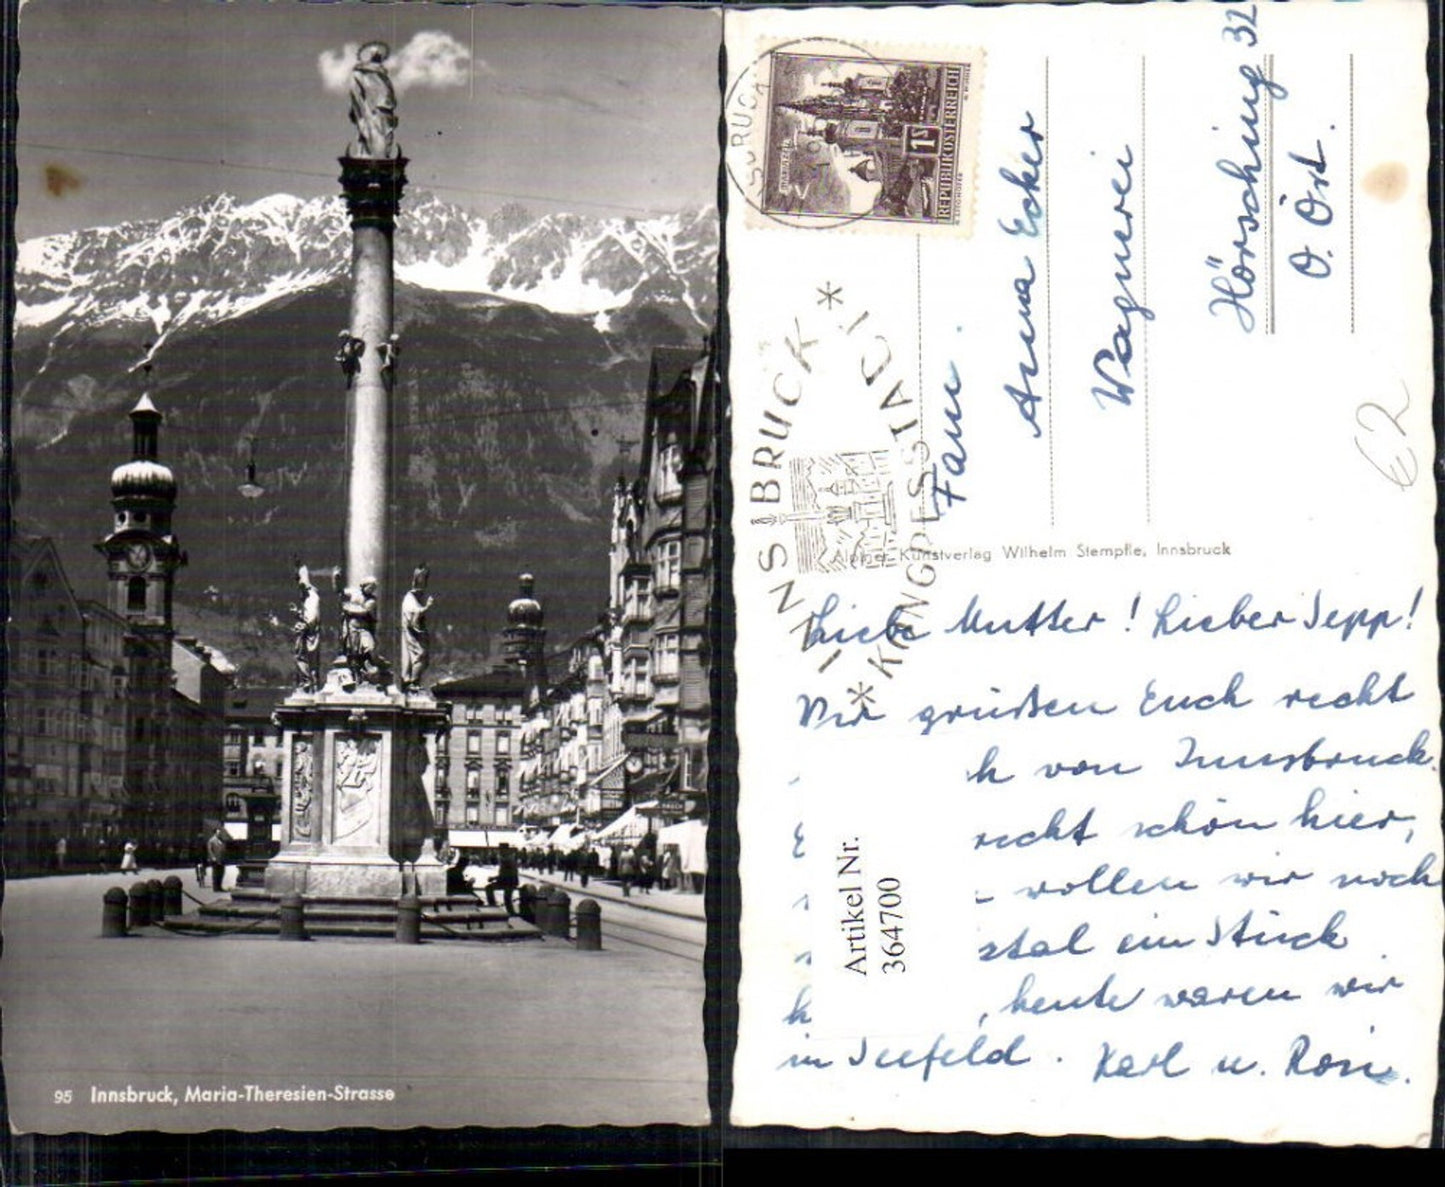 95 Innsbruck, Maria-Theresien-Strasse
REPUBLIK ÖSTERREICH
1S
INNSBRUCK
KONGRESSTADT
Fam.
Anna Ecker
Wagnerei
Hörsching 32
O. Öst.
€2
Alpiner Kunstverlag Wilhelm Stempfle, Innsbruck
Liebe Mutter! Lieber Sepp!
Wir grüßen Euch recht
h von Innsbruck.
recht schön hier,
wollen wir noch
stal ein Stück
h , heute waren wir
in Seefeld. Karl u. Rosi.
Artikel Nr.
364700